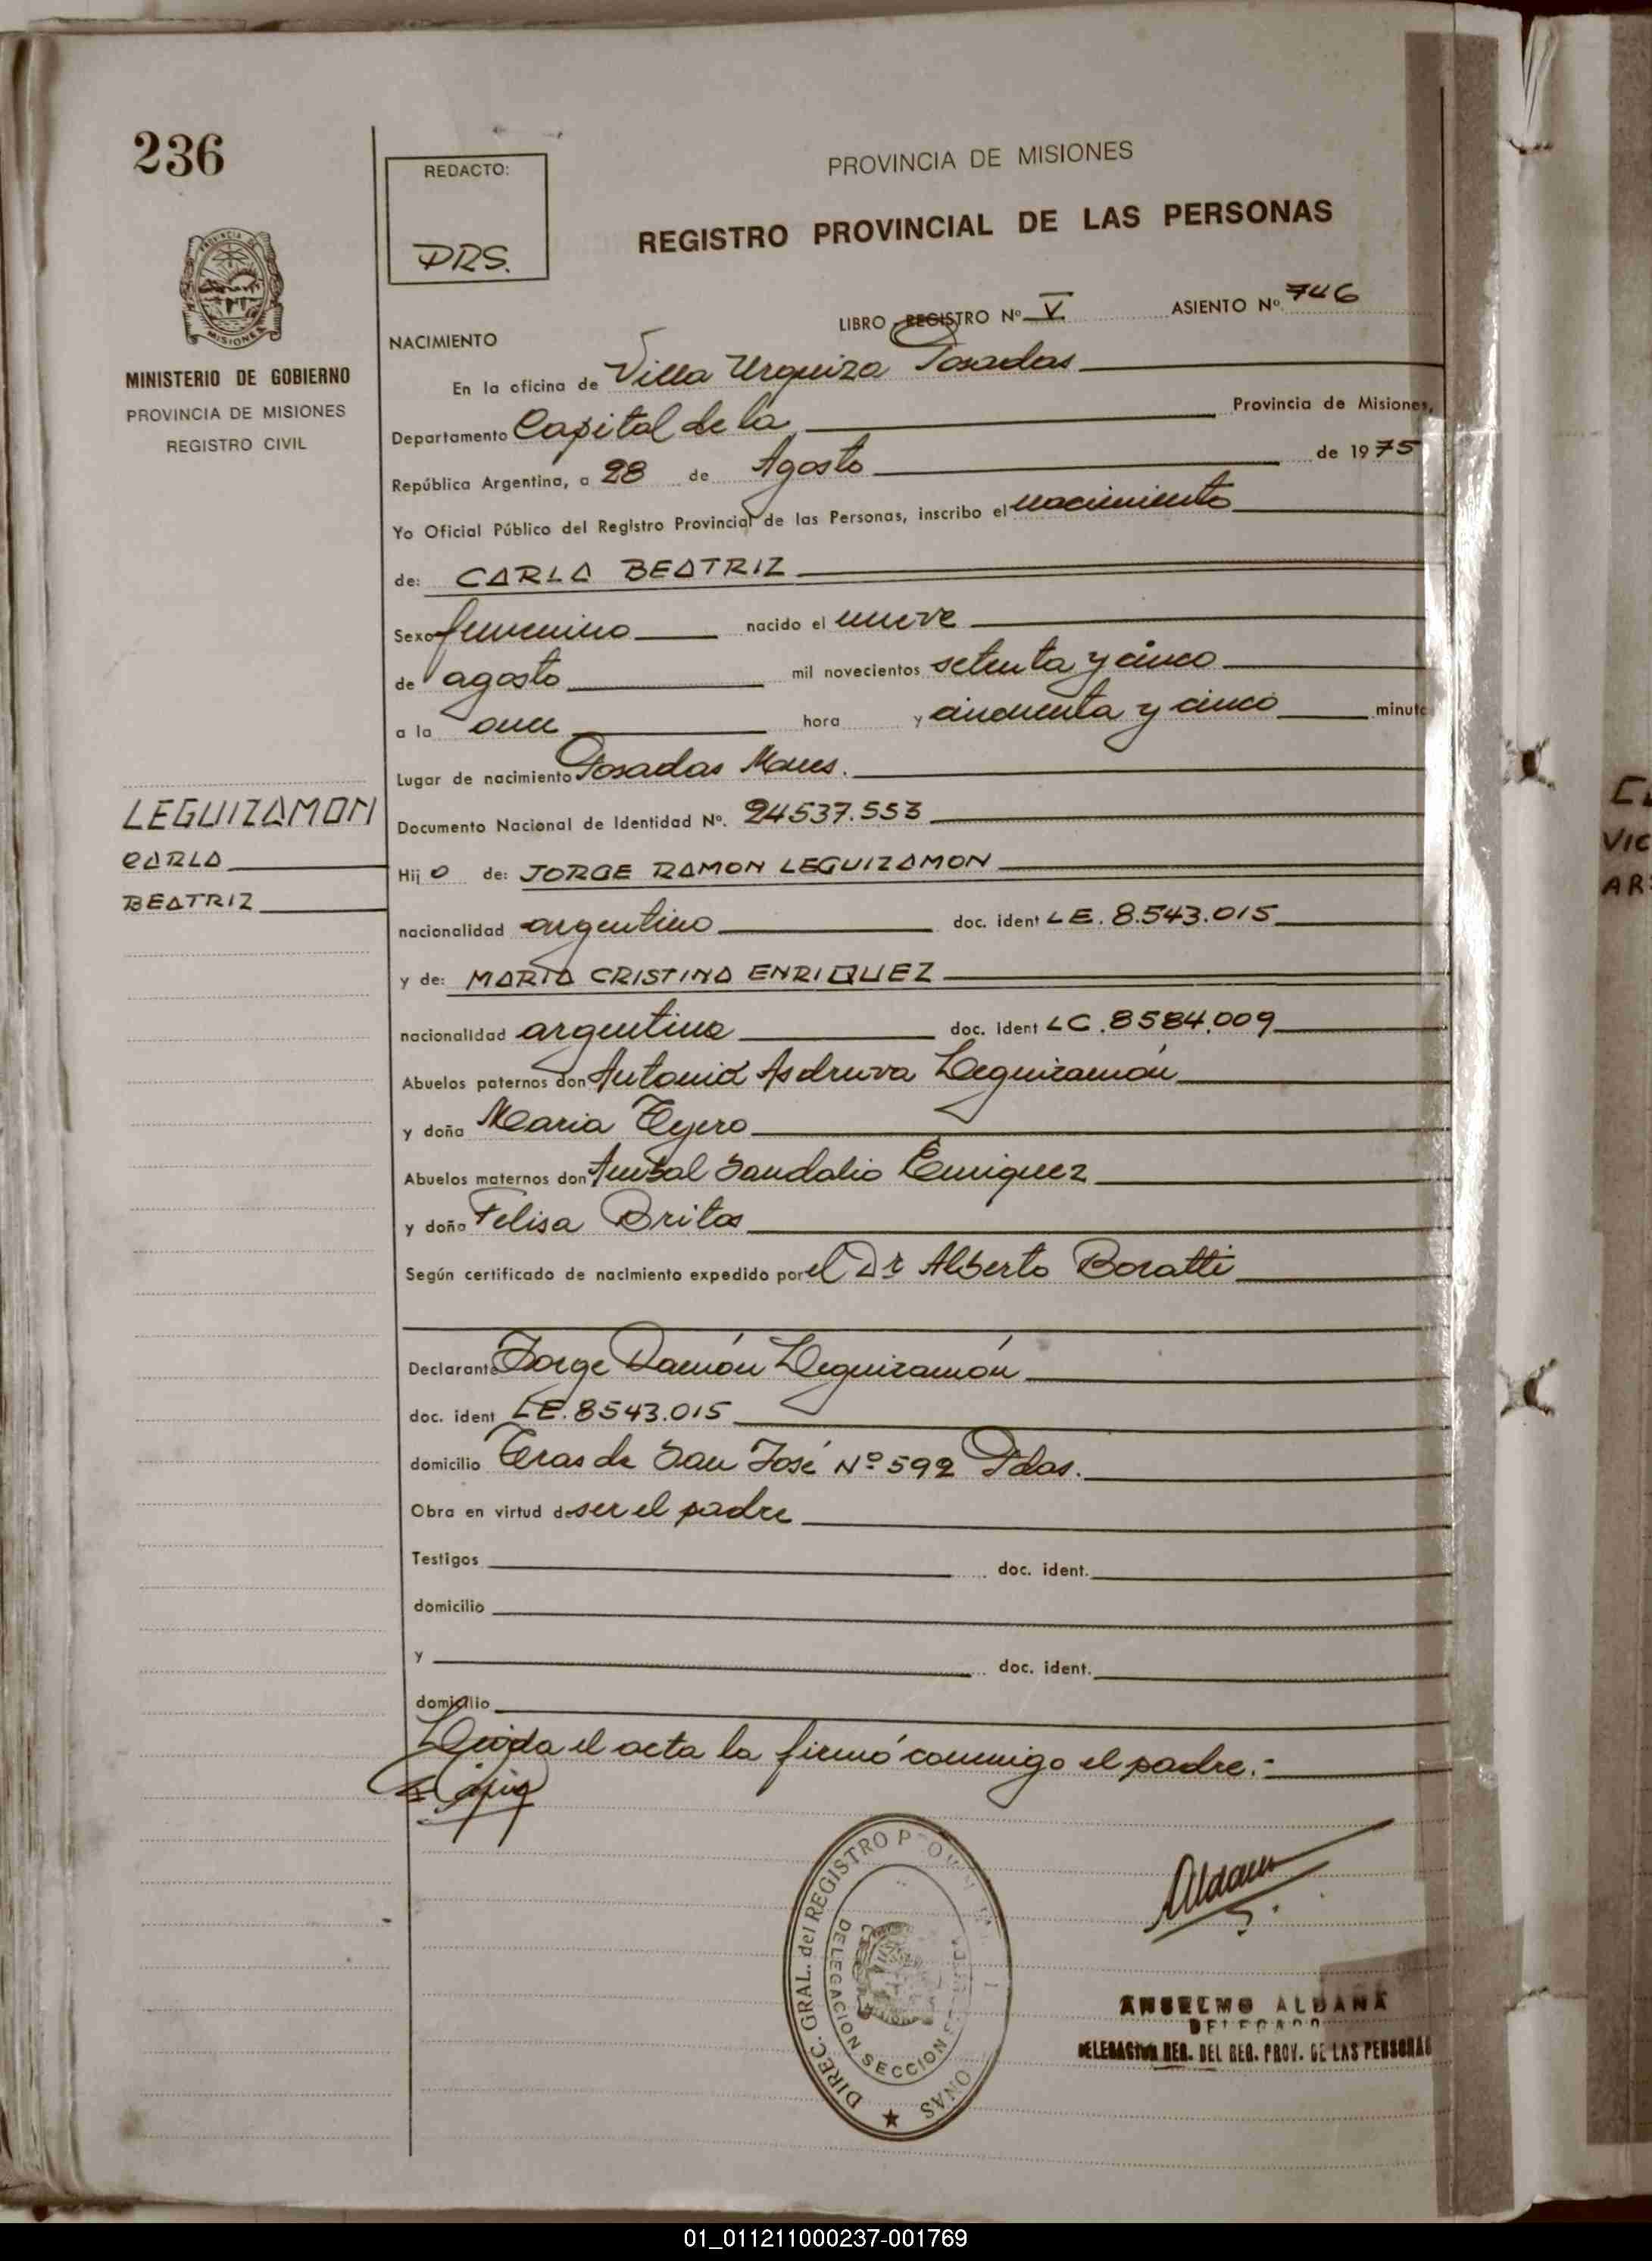 236
REDACTO:
DRS.
PROVINCIA DE MISIONES
REGISTRO PROVINCIAL DE LAS PERSONAS
PROVINCIA DE
MISIONES
MINISTERIO DE GOBIERNO
PROVINCIA DE MISIONES
REGISTRO CIVIL
LIBRO REGISTRO Nº V ASIENTO Nº 746
NACIMIENTO
En la oficina de Villa Urquiza Posadas
Departamento Capital de la Provincia de Misiones,
República Argentina, a 28 de Agosto de 1975
Yo Oficial Público del Registro Provincial de las Personas, inscribo el nacimiento
de: CARLA BEATRIZ
Sexo femenino nacido el nueve
de agosto mil novecientos setenta y cinco
a la once hora y cincuenta y cinco minuto
Lugar de nacimiento Posadas Mnes.
LEGUIZAMON
CARLA
BEATRIZ
Documento Nacional de Identidad Nº. 24537.553
Hij o de: JORGE RAMON LEGUIZAMON
nacionalidad argentino doc. ident LE. 8.543.015
y de: MARIA CRISTINA ENRIQUEZ
nacionalidad argentina doc. ident LC. 8584.009
Abuelos paternos don Antonio Asdruva Leguizamón
y doña Maria Tejero
Abuelos maternos don Anibal Sandalio Enriquez
y doña Felisa Britos
Según certificado de nacimiento expedido por el Dr Alberto Boratti
Declarante Jorge Ramón Leguizamón
doc. ident LE. 8543.015
domicilio Teras de San José Nº 592 Pdas.
Obra en virtud de ser el padre
Testigos doc. ident.
domicilio
y doc. ident.
domicilio
Leida el acta la firmó conmigo el padre.-
DIREC. GRAL. del REGISTRO
DELEGACION SECCION
ANSELMO ALDANA
DELEGADO
DELEGACION REG. DEL REG. PROV. DE LAS PERSONAS
VIC
01_011211000237-001769